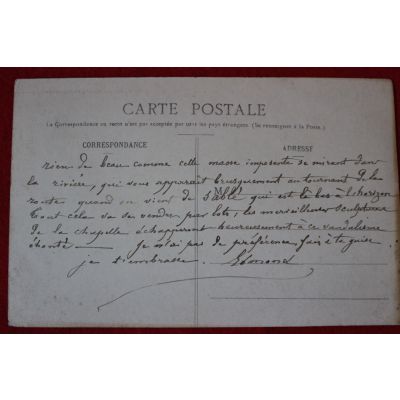 CARTE POSTALE
La Correspondance au recto n'est pas acceptée par tous les pays étrangers. (Se renseigner à la Poste.)
CORRESPONDANCE
ADRESSE
M
rien de beau comme cette masse imposante se mirant dans
la rivière, qui vous apparaît brusquement au tournant de la
route quand on vient de Sablé qui est là bas à l'horizon
Tout cela va se vendre par lots, les merveilleuses sculptures
de la chapelle échapperont heureusement à ce vandalisme
éhonté — Je n'ai pas de préférence fais à ta guise
je t'embrasse. Edmond